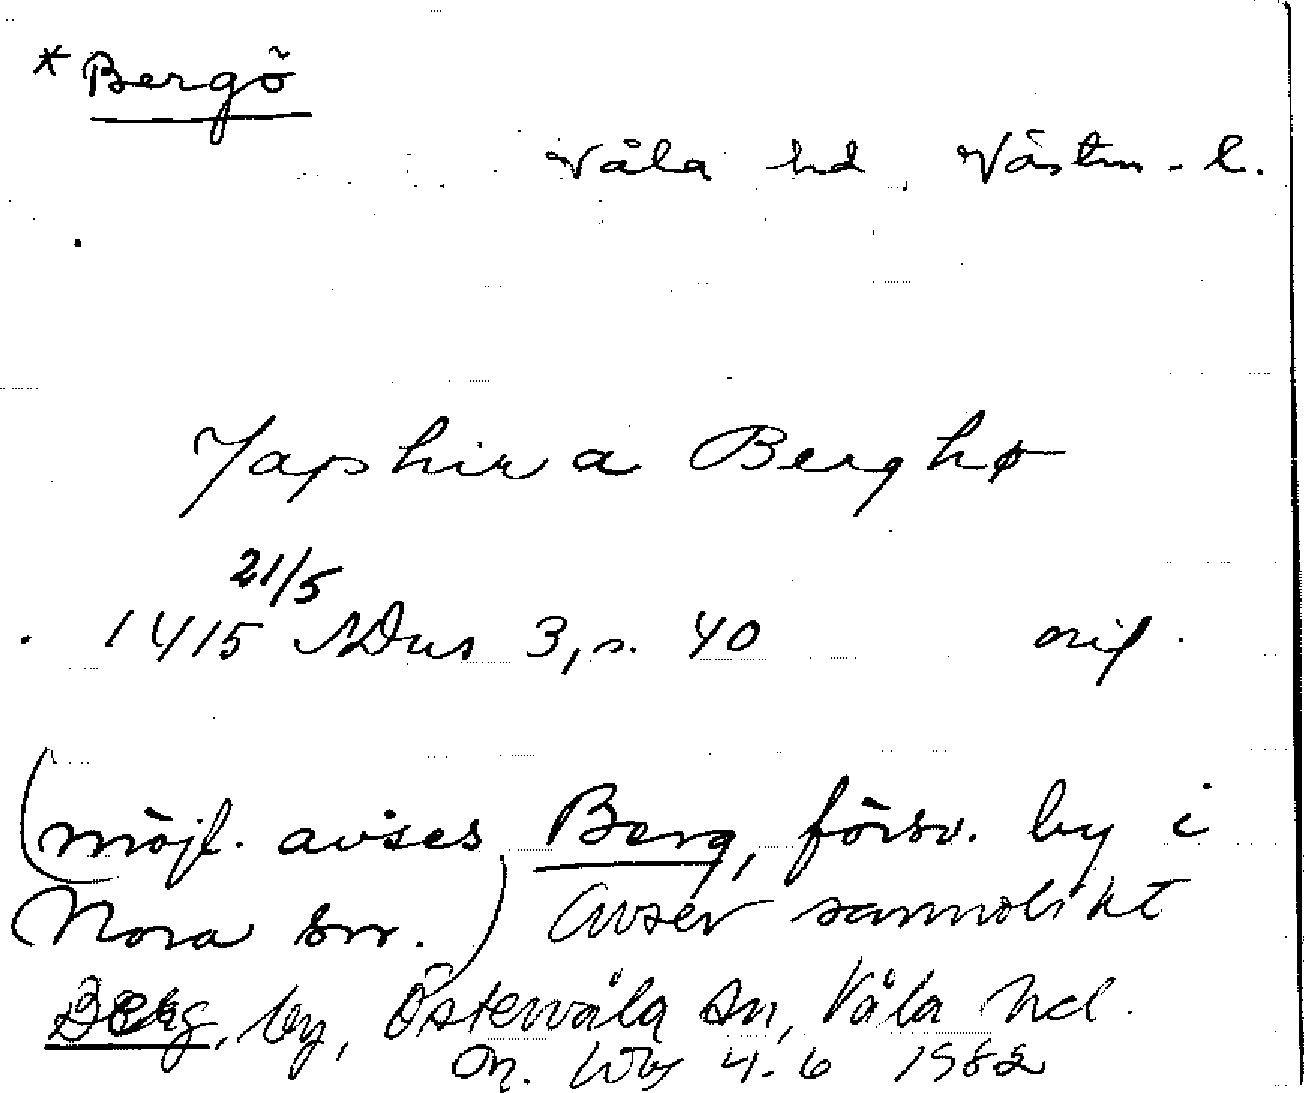 * Bergö
Våla hd Västm. l.
Japhir a Berghø
21/5
1415 NDus 3, s. 40 orig.
(möjl. avses Berg, försv. by i
Nora sn.) Avser sannolikt
Berg, by, Östervåla sn, Våla hd.
4.6 1982